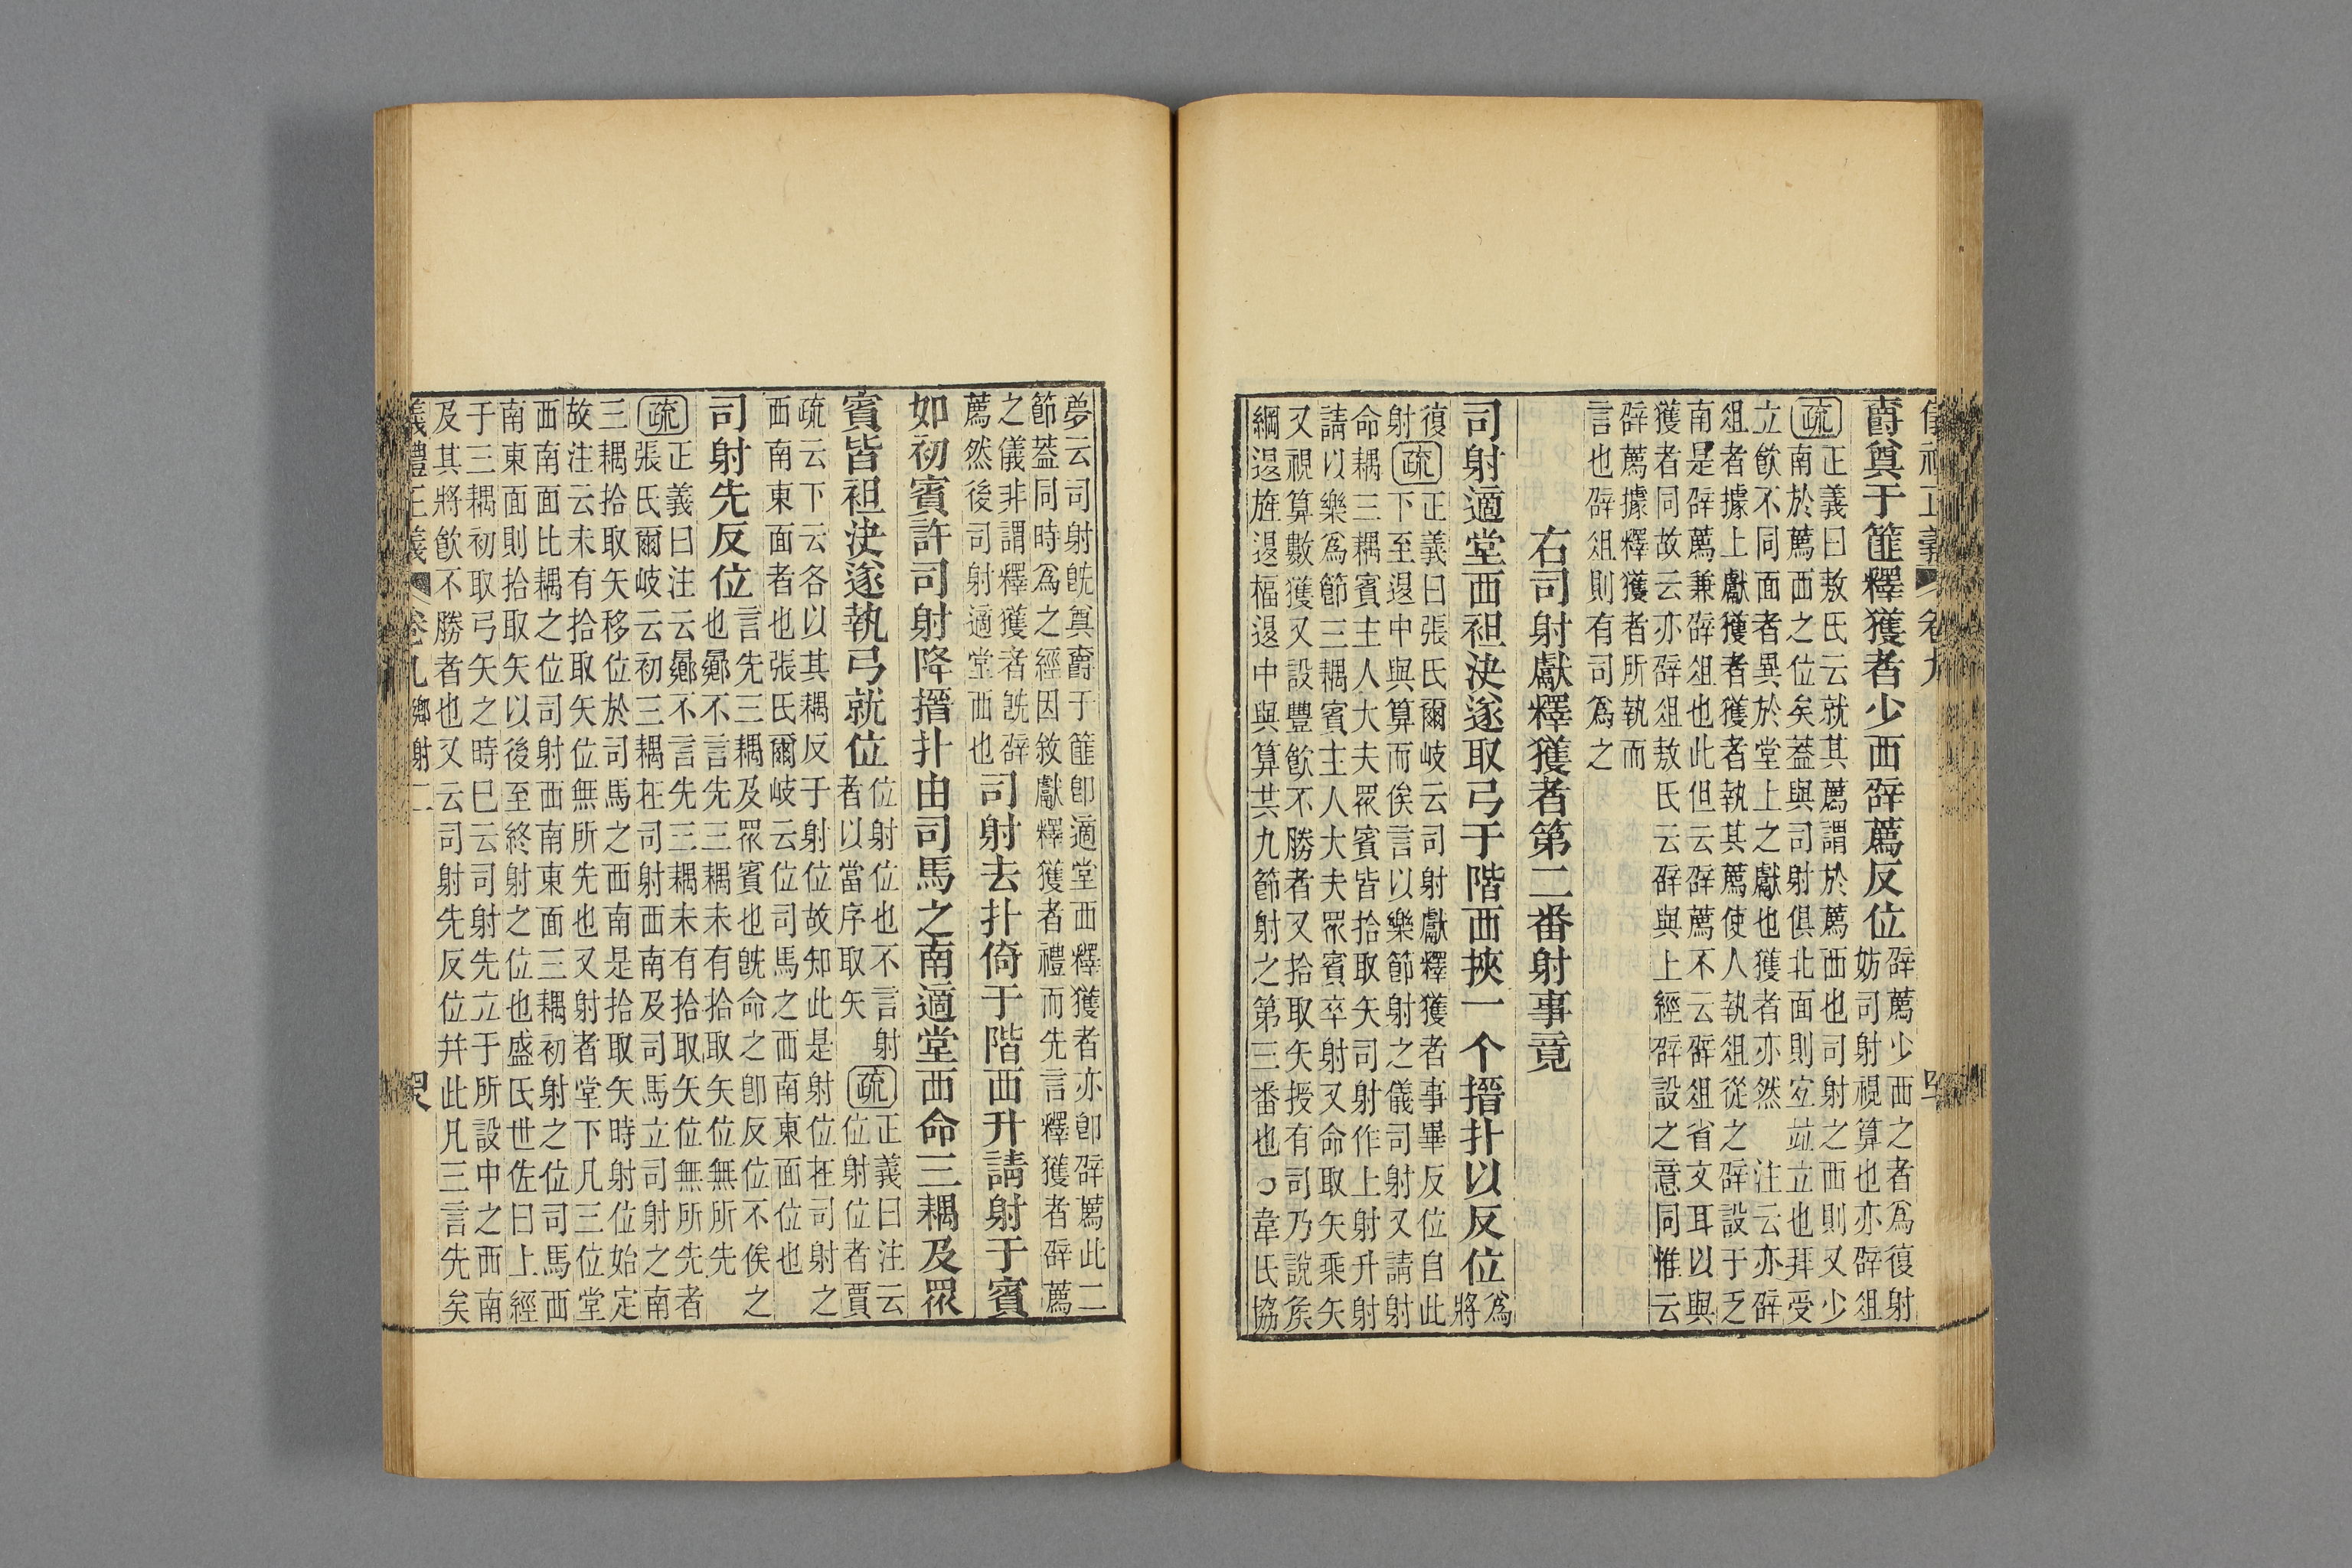 爵奠于篚釋獲者少西辟薦反位辟薦少西之者爲復射
妨司射視算也亦辟俎
疏正義曰敖氏云就其薦謂於薦西也司射之西則又少
南於薦西之位矣葢與司射俱北面則宐竝立也拜受
立飮不同面者異於堂上之獻也獲者亦然　注云亦辟
俎者據上獻獲者獲者執其薦使人執俎從之辟設于乏
南是辟薦兼辟俎也此但云辟薦不云辟俎省文耳以與
獲者同故云亦辟俎敖氏云辟與上經辟設之意同惟云
辟薦據釋獲者所執而
言也辟俎則有司爲之
右司射獻釋獲者第二番射事竟
司射適堂西袒決遂取弓于階西挾一个搢扑以反位爲
將
復
射疏正義曰張氏爾岐云司射獻釋獲者事畢反位自此
下至退中與算而俟言以樂節射之儀司射又請射
命耦三耦賓主人大夫眾賓皆拾取矢司射作上射升射
請以樂爲節三耦賓主人大夫眾賓卒射又命取矢乘矢
又視算數獲又設豐飮不勝者又拾取矢授有司乃說矦
綱退旌退楅退中與算共九節射之第三番也○韋氏協
夢云司射旣奠爵于篚卽適堂西釋獲者亦卽辟薦此二
節葢同時爲之經因敘獻釋獲者禮而先言釋獲者辟薦
之儀非謂釋獲者旣辟
薦然後司射適堂西也
司射去扑倚于階西升請射于賓
如初賓許司射降搢扑由司馬之南適堂西命三耦及眾
賓皆袒決遂執弓就位位射位也不言射
者以當序取矢
疏正義曰注云
位射位者賈
疏云下云各以其耦反于射位故知此是射位在司射之
西南東面者也張氏爾岐云位司馬之西南東面位也
司射先反位言先三耦及眾賓也旣命之卽反位不俟之
也曏不言先三耦未有拾取矢位無所先
疏正義曰注云曏不言先三耦未有拾取矢位無所先者
張氏爾岐云初三耦在司射西南及司馬立司射之南
三耦拾取矢移位於司馬之西南是拾取矢時射位始定
故注云未有拾取矢位無所先也又射者堂下凡三位堂
西南面比耦之位司射西南東面三耦初射之位司馬西
南東面則拾取矢以後至終射之位也盛氏世佐曰上經
于三耦初取弓矢之時巳云司射先立于所設中之西南
及其將飮不勝者也又云司射先反位幷此凡三言先矣